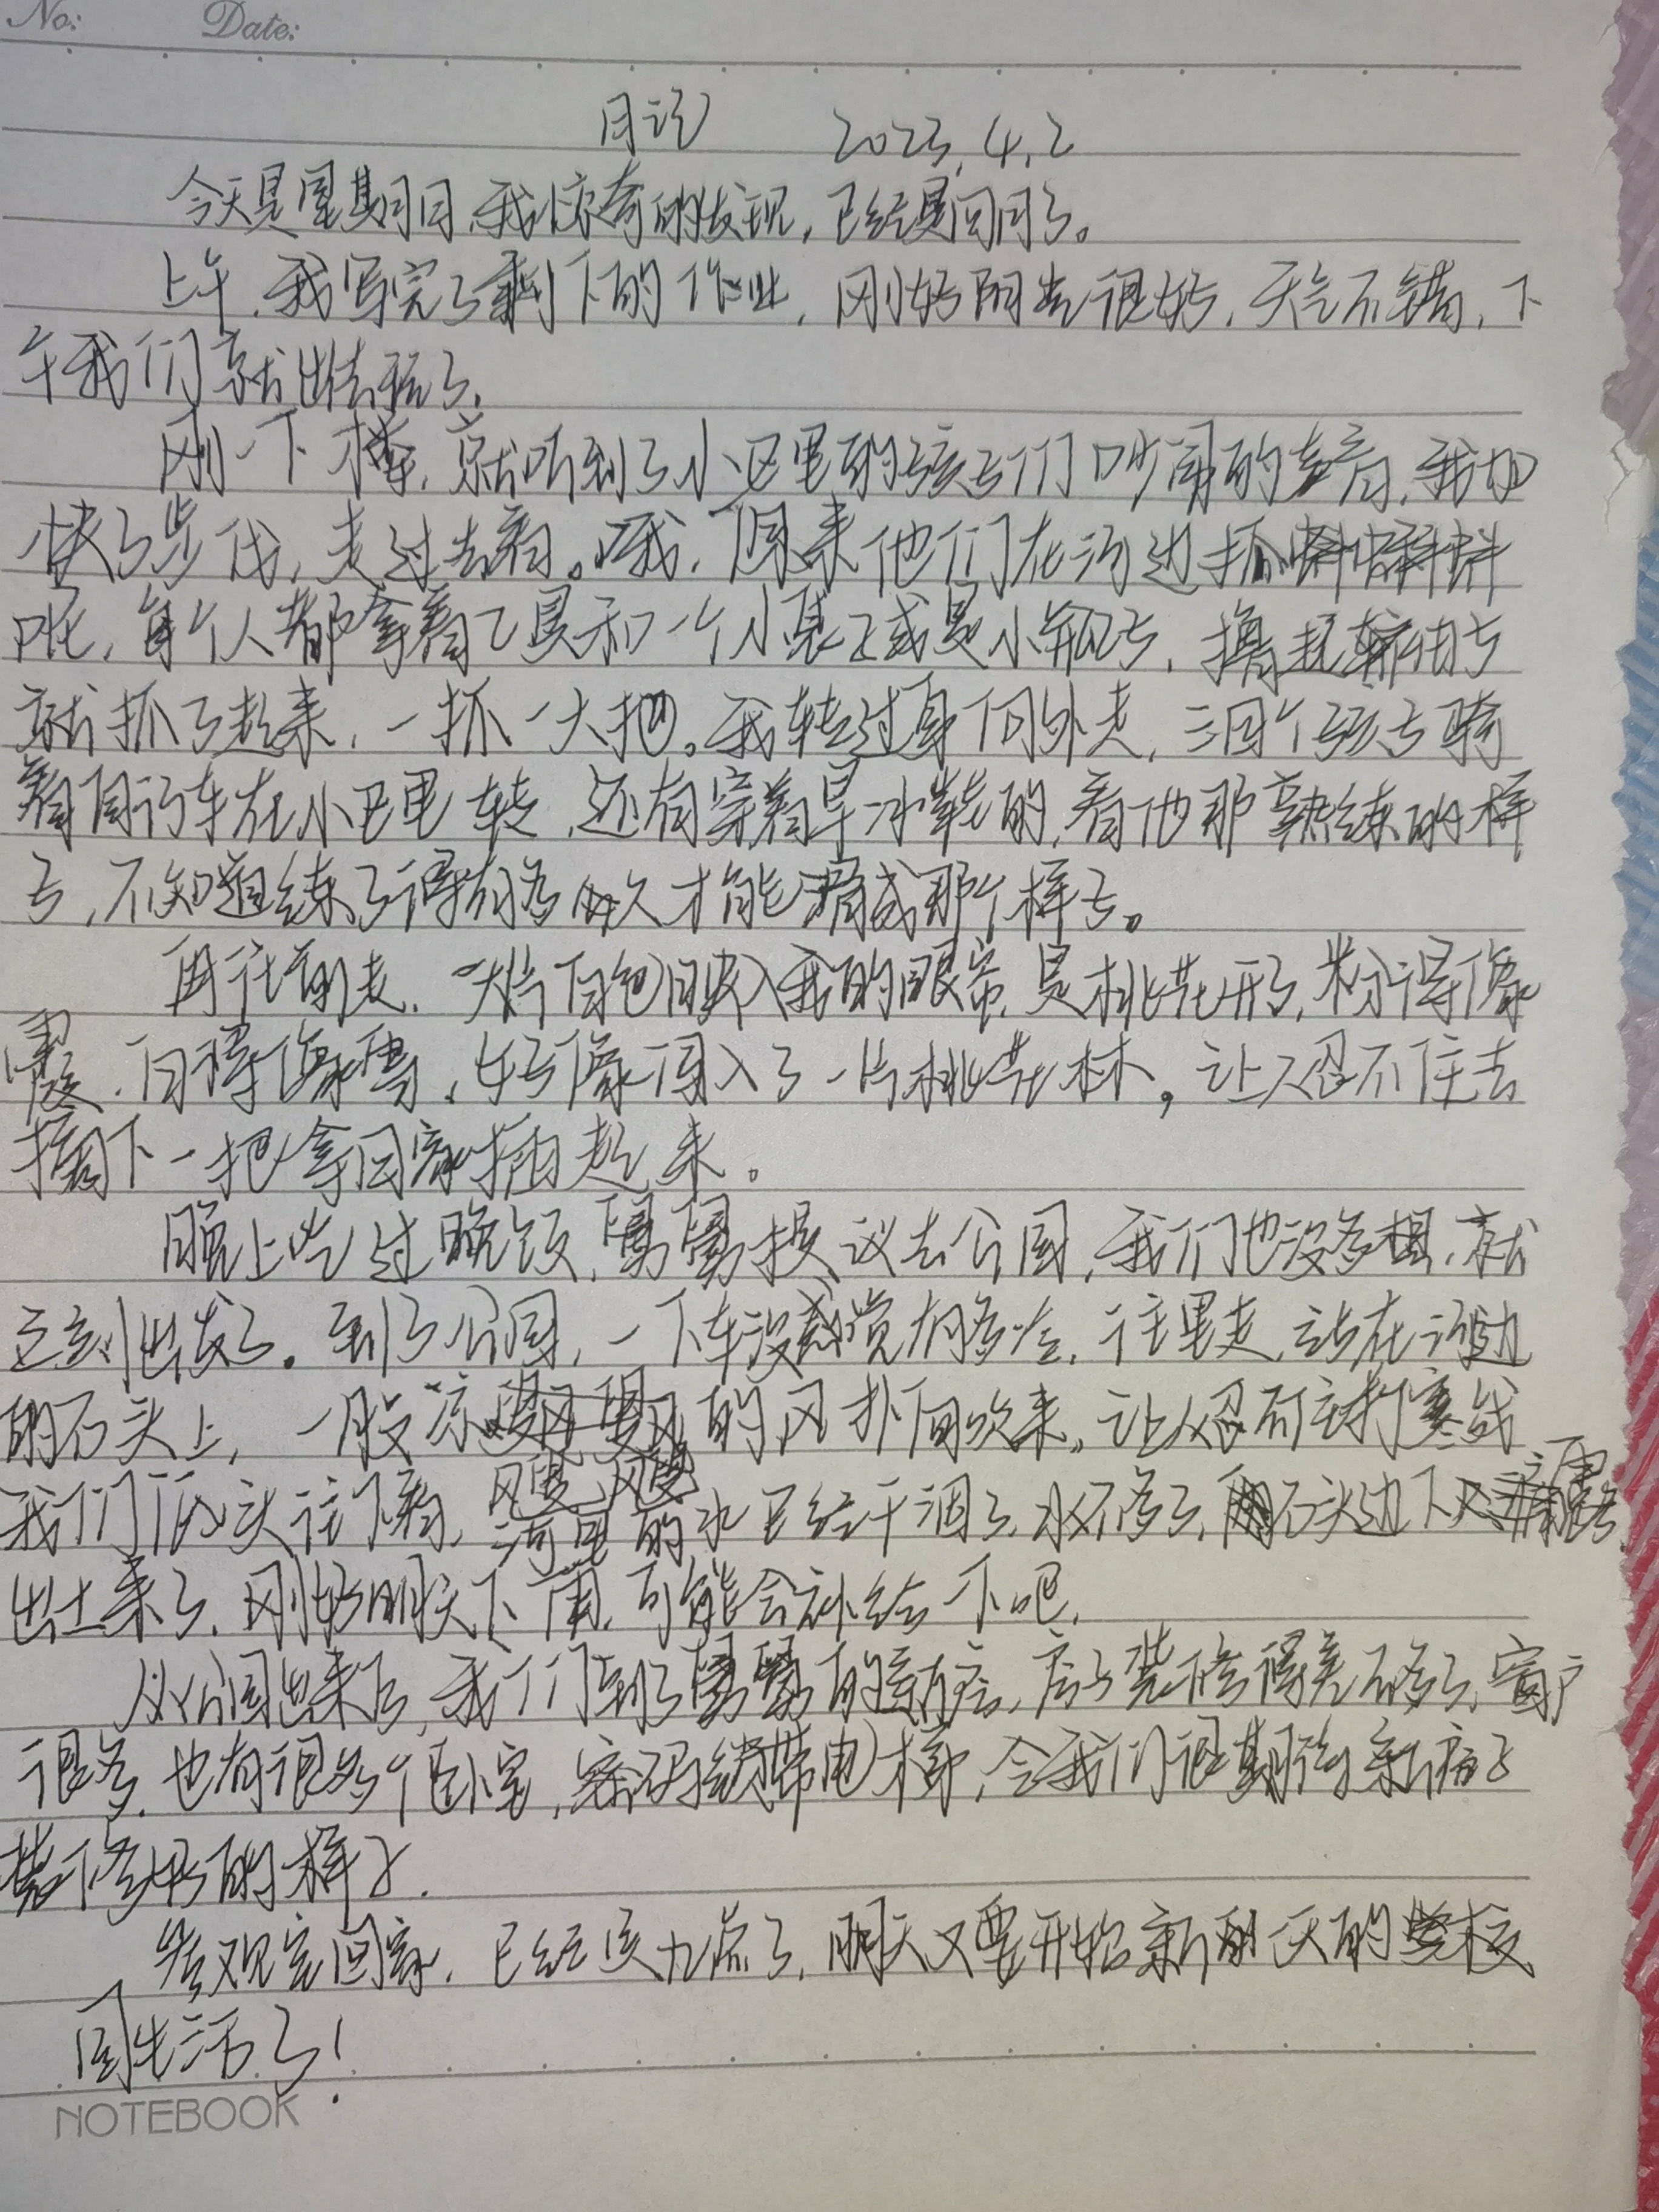 No: Date:
日记 2023.4.2
今天是星期日,我惊奇的发现,已经是四月了。
上午,我写完了剩下的作业,刚好阳光很好,天气不错,下
午我们就出去玩了。
刚一下楼,就听到了小区里的孩子们吵闹的声音,我加
快了步伐,走过去看。哦,原来他们在河边抓蝌蚪
呢,每个人都拿着工具和一个小袋子或是小瓶子,撸起袖子
就抓了起来,一抓一大把。我转过身向外走,三四个孩子骑
着自行车在小区里转,还有穿着旱冰鞋的,看他那熟练的样
子,不知道练了得有多久才能滑成那个样子。
再往前走,一大片白色映入我的眼帘,是桃花开了,粉得像
霞,白得像雪,好像闯入了一片桃花林,让人忍不住去
摘下一把拿回家插起来。
晚上吃过晚饭,舅舅提议去公园,我们也没多想,就
立刻出发了。到了公园,一下车没感觉有多冷,往里走,站在河边
的石头上,一股凉飕飕的风扑面吹来,让人忍不住打寒战
我们低头往下看,河里的水已经干涸了,水不多了,石头边下
出来了,刚好明天下雨,可能会补给一下吧,
从公园出来后,我们到了舅舅的新房,房子装修得差不多了,窗户
很多,也有很多个卧室,密码锁带电梯,令我们很期待新房子
装修好的样子.
参观完回家,已经该九点了,明天又要开始新的一天的学校
生活了!
NOTEBOOK